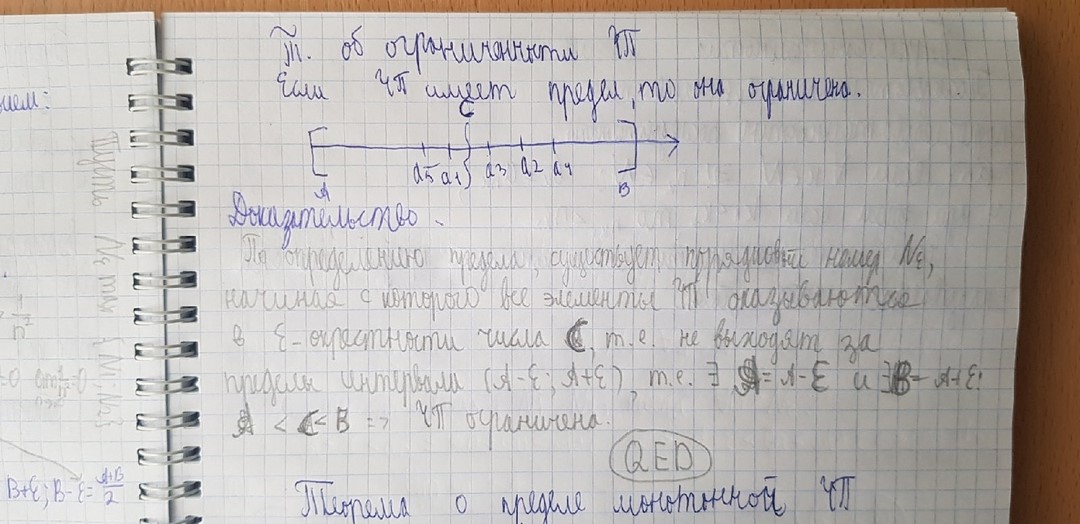 Т. об ограниченности ЧП
Если ЧП имеет предел, то она ограничена.
C
a5 a1 a3 a2 a4
A B
Доказательство.
По определению предела, существует порядковый номер Nε,
начиная с которого все элементы ЧП оказываются
в ε-окрестности числа C, т.е. не выходят за
пределы интервала (A-ε; A+ε), т.е. ∃ A = A-ε и ∃ B = A+ε:
A < C < B => ЧП ограничена.
QED
Теорема о пределе монотонной ЧП
нием:
Пусть
1
n²
B+ε; B-ε = A+B
2